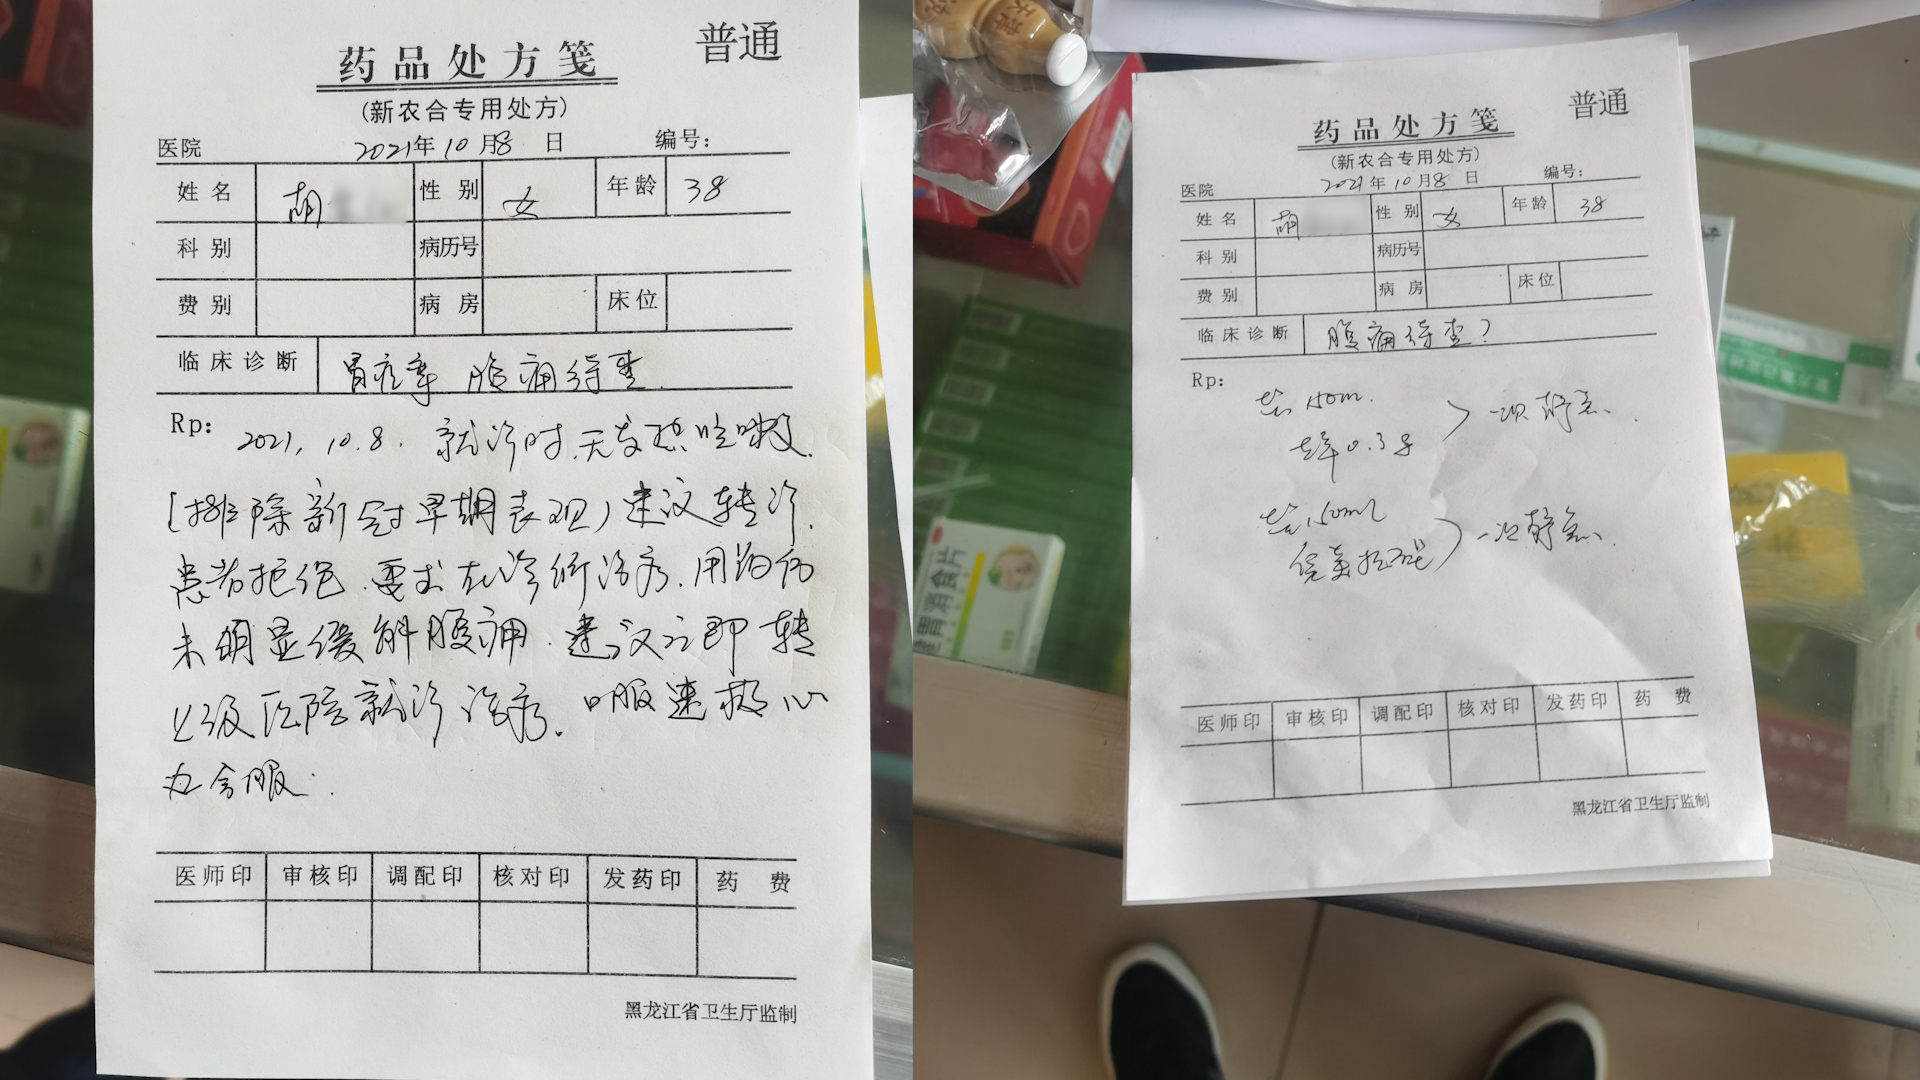 药品处方笺
普通
(新农合专用处方)
医院 2021年10月8日 编号:
姓名 胡 性别 女 年龄 38
科别 病历号
费别 病房 床位
临床诊断 胃痉挛 腹痛待查.
Rp:
2021.10.8. 就诊时.无发热咳嗽.
(排除新冠早期表现)建议转诊.
患者拒绝.要求在诊所治疗.用药后
未明显缓解腹痛.建议立即转
上级医院就诊治疗.口服速救心
丸含服.
医师印 审核印 调配印 核对印 发药印 药费
黑龙江省卫生厅监制
药品处方笺
普通
(新农合专用处方)
医院 2021年10月8日 编号:
姓名 胡 性别 女 年龄 38
科别 病历号
费别 病房 床位
临床诊断 腹痛待查?
Rp:
150ml
0.3g
一次静点.
150ml
一次静点.
医师印 审核印 调配印 核对印 发药印 药费
黑龙江省卫生厅监制
健胃消食片